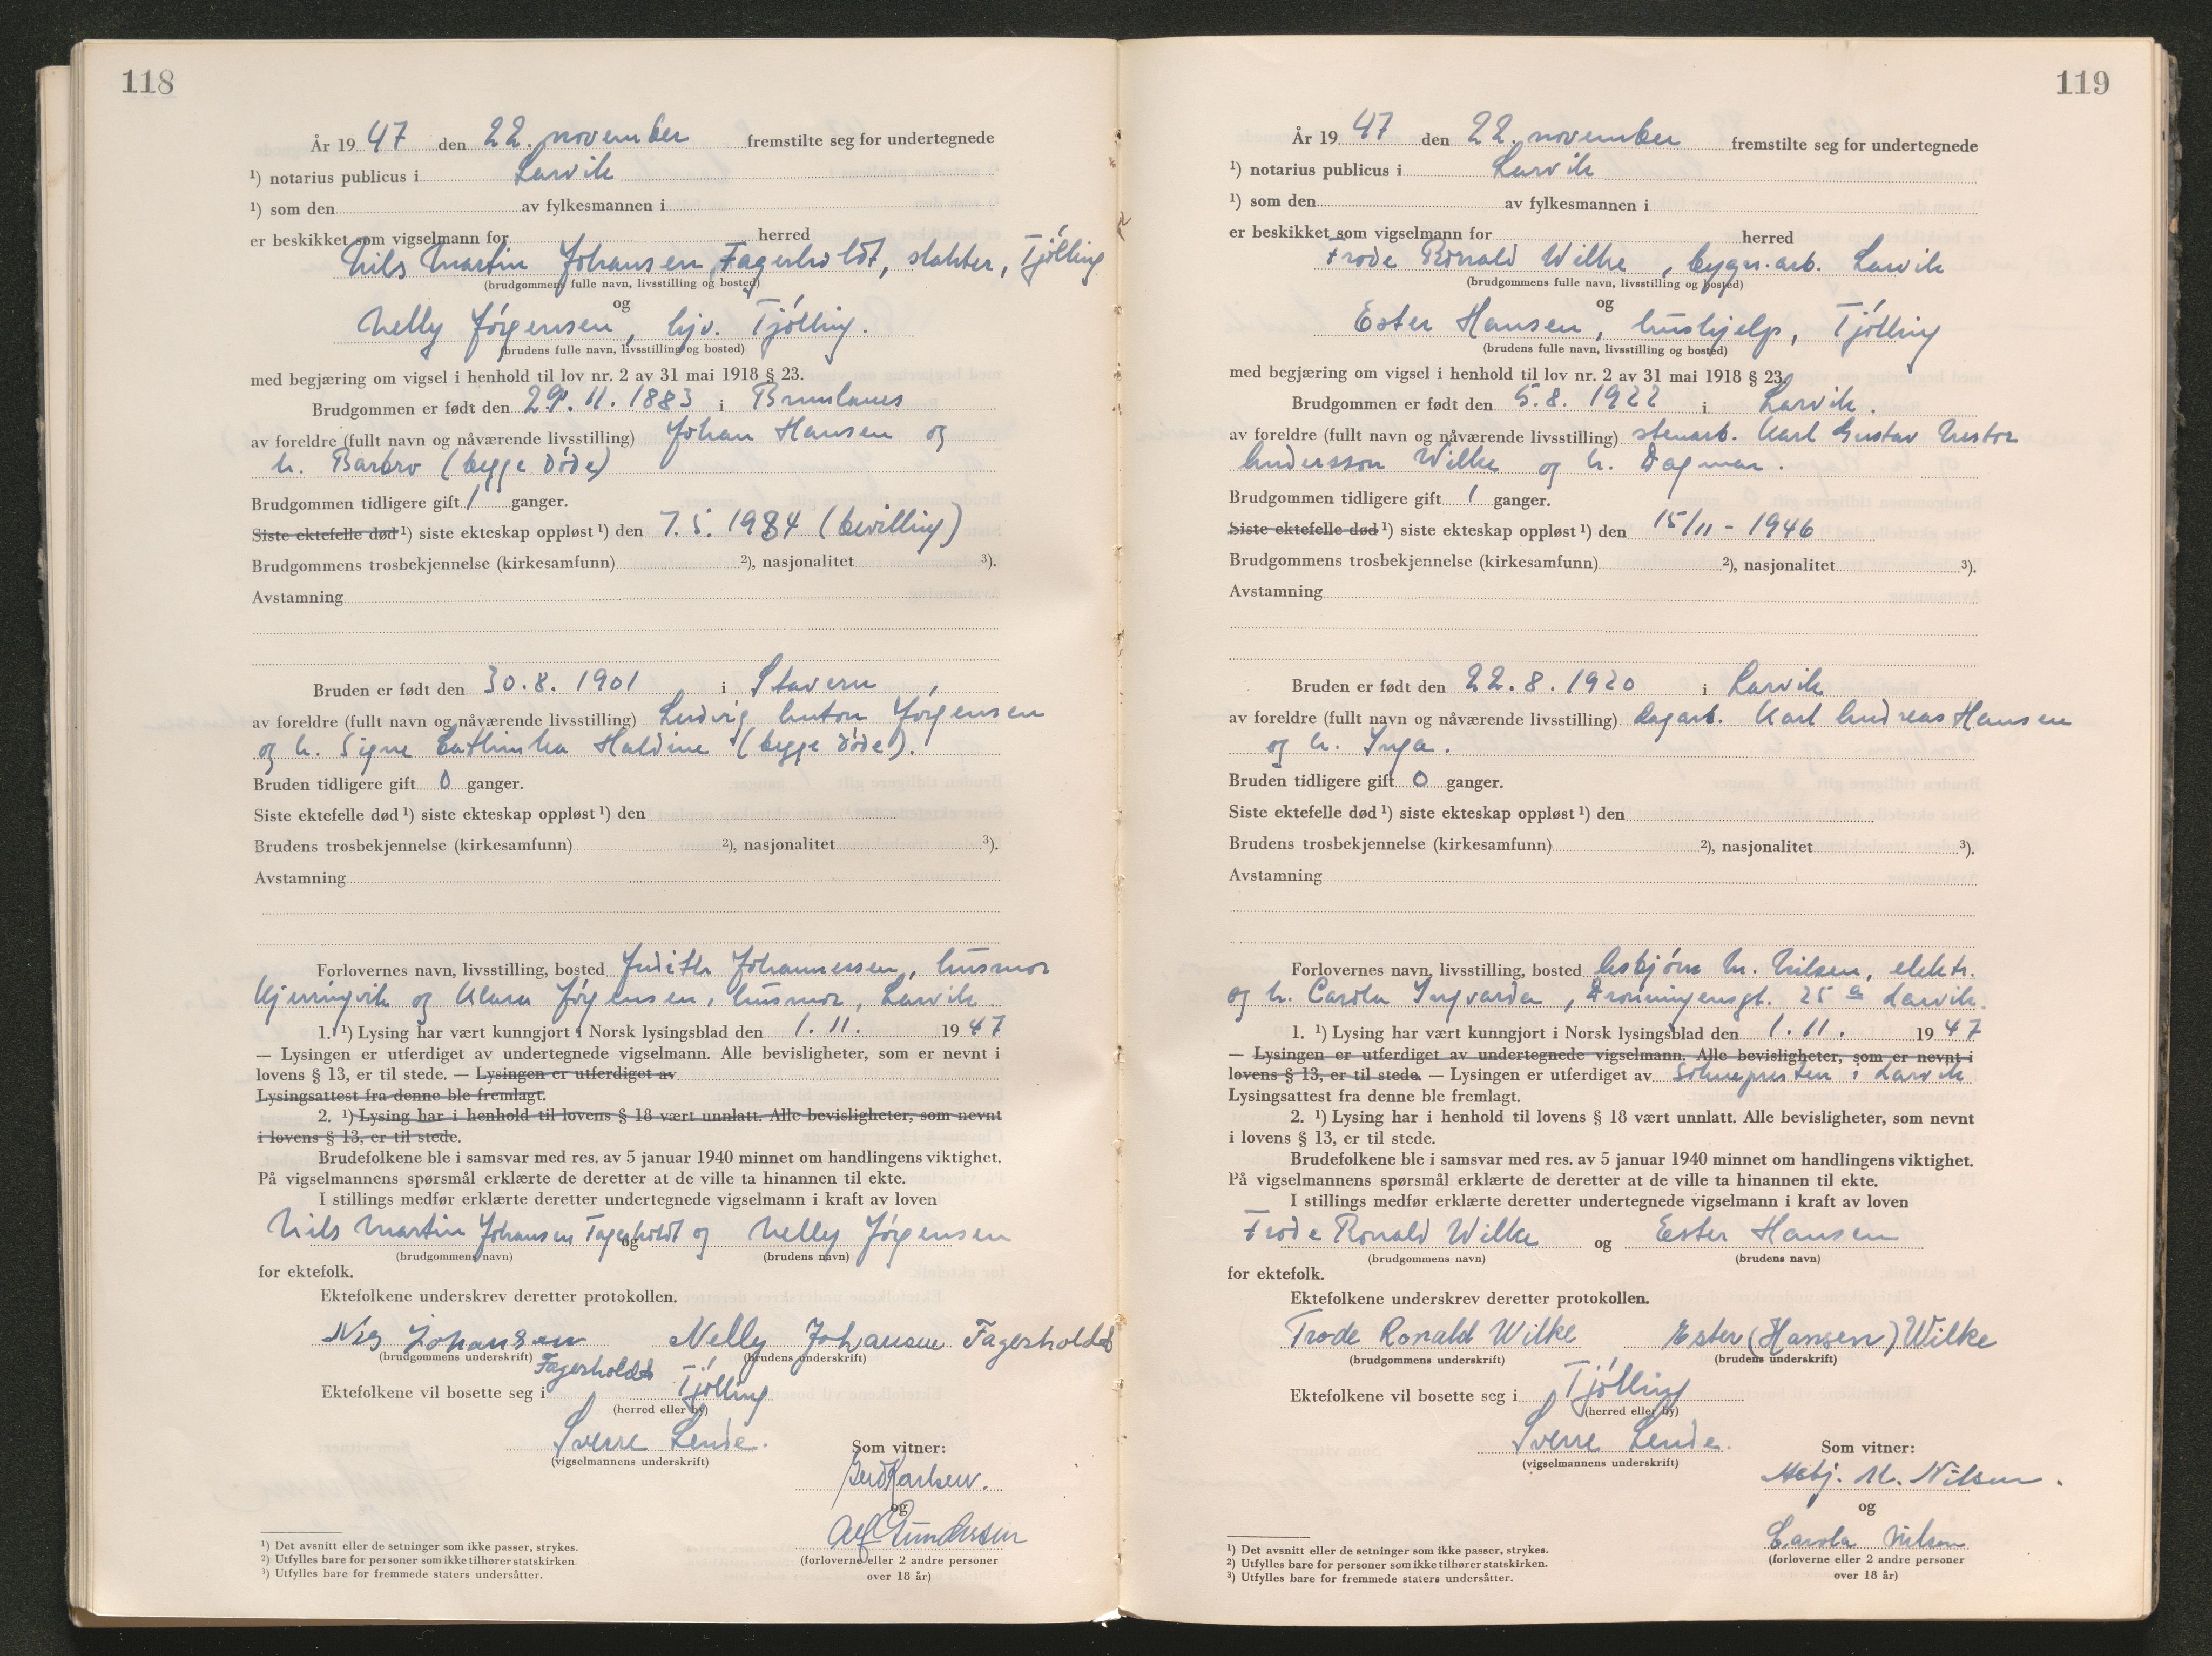 118
År 1947 den 22. november fremstilte seg for undertegnede
¹) notarius publicus i Larvik
¹) som den av fylkesmannen i
er beskikket som vigselmann for herred
Nils Martin Johansen Fagerholdt, slakter, Tjölling
(brudgommens fulle navn, livsstilling og bosted)
og
Nelly Jörgensen, hjv. Tjölling.
(brudens fulle navn, livsstilling og bosted)
med begjæring om vigsel i henhold til lov nr. 2 av 31 mai 1918 § 23.
Brudgommen er født den 29. 11. 1883 i Brunlanes
av foreldre (fullt navn og nåværende livsstilling) Johan Hansen og
h. Barbro (begge döde)
Brudgommen tidligere gift 1 ganger.
Siste ektefelle død ¹) siste ekteskap oppløst ¹) den 7. 5. 1934 (bevilling)
Brudgommens trosbekjennelse (kirkesamfunn) ²), nasjonalitet ³).
Avstamning
Bruden er født den 30. 8. 1901 i Stavern,
av foreldre (fullt navn og nåværende livsstilling) Ludvig Anton Jörgensen
og h. Signe Cathinka Haldine (begge döde).
Bruden tidligere gift 0 ganger.
Siste ektefelle død ¹) siste ekteskap oppløst ¹) den
Brudens trosbekjennelse (kirkesamfunn) ²), nasjonalitet ³).
Avstamning
Forlovernes navn, livsstilling, bosted Judith Johannessen, husmor
Kjerringvik og Klara Jörgensen, husmor, Larvik.
1. ¹) Lysing har vært kunngjort i Norsk lysingsblad den 1. 11. 1947
— Lysingen er utferdiget av undertegnede vigselmann. Alle bevisligheter, som er nevnt i
lovens § 13, er til stede. — Lysingen er utferdiget av
Lysingsattest fra denne ble fremlagt.
2. ¹) Lysing har i henhold til lovens § 18 vært unnlatt. Alle bevisligheter, som nevnt
i lovens § 13, er til stede.
Brudefolkene ble i samsvar med res. av 5 januar 1940 minnet om handlingens viktighet.
På vigselmannens spørsmål erklærte de deretter at de ville ta hinannen til ekte.
I stillings medfør erklærte deretter undertegnede vigselmann i kraft av loven
Nils Martin Johansen Fagerholdt og og Nelly Jörgensen
(brudgommens navn) (brudens navn)
for ektefolk.
Ektefolkene underskrev deretter protokollen.
Nils Johansen Nelly Johansen Fagerholdt
(brudgommens underskrift) (brudens underskrift)
Fagerholdt
Ektefolkene vil bosette seg i Tjölling
(herred eller by)
Sverre Lende.
(vigselmannens underskrift)
Som vitner:
Gerd Karlsen.
og
Alf Gundersen
(forloverne eller 2 andre personer
over 18 år)
¹) Det avsnitt eller de setninger som ikke passer, strykes.
²) Utfylles bare for personer som ikke tilhører statskirken.
³) Utfylles bare for fremmede staters undersåtter.
119
År 1947 den 22. november fremstilte seg for undertegnede
¹) notarius publicus i Larvik
¹) som den av fylkesmannen i
er beskikket som vigselmann for herred
Frode Ronald Wilke, bygn.arb. Larvik
(brudgommens fulle navn, livsstilling og bosted)
og
Ester Hansen, hushjelp, Tjölling
(brudens fulle navn, livsstilling og bosted)
med begjæring om vigsel i henhold til lov nr. 2 av 31 mai 1918 § 23.
Brudgommen er født den 5. 8. 1922 i Larvik.
av foreldre (fullt navn og nåværende livsstilling) stenarb. Karl Gustav Nestor
Andersson Wilke og h. Dagmar.
Brudgommen tidligere gift 1 ganger.
Siste ektefelle død ¹) siste ekteskap oppløst ¹) den 15/11 - 1946
Brudgommens trosbekjennelse (kirkesamfunn) ²), nasjonalitet ³).
Avstamning
Bruden er født den 22. 8. 1920 i Larvik
av foreldre (fullt navn og nåværende livsstilling) lagarb. Karl Andreas Hansen
og h. Inga.
Bruden tidligere gift 0 ganger.
Siste ektefelle død ¹) siste ekteskap oppløst ¹) den
Brudens trosbekjennelse (kirkesamfunn) ²), nasjonalitet ³).
Avstamning
Forlovernes navn, livsstilling, bosted Asbjörn M. Nilsen, elektr.
og h. Carola Ingvarda, Dronningensgt. 25 a Larvik.
1. ¹) Lysing har vært kunngjort i Norsk lysingsblad den 1. 11. 1947
— Lysingen er utferdiget av undertegnede vigselmann. Alle bevisligheter, som er nevnt i
lovens § 13, er til stede. — Lysingen er utferdiget av Soknepresten i Larvik
Lysingsattest fra denne ble fremlagt.
2. ¹) Lysing har i henhold til lovens § 18 vært unnlatt. Alle bevisligheter, som nevnt
i lovens § 13, er til stede.
Brudefolkene ble i samsvar med res. av 5 januar 1940 minnet om handlingens viktighet.
På vigselmannens spørsmål erklærte de deretter at de ville ta hinannen til ekte.
I stillings medfør erklærte deretter undertegnede vigselmann i kraft av loven
Frode Ronald Wilke og Ester Hansen
(brudgommens navn) (brudens navn)
for ektefolk.
Ektefolkene underskrev deretter protokollen.
Frode Ronald Wilke Ester (Hansen) Wilke
(brudgommens underskrift) (brudens underskrift)
Ektefolkene vil bosette seg i Tjölling
(herred eller by)
Sverre Lende.
(vigselmannens underskrift)
Som vitner:
Asbj. M. Nilsen.
og
Carola Nilsen
(forloverne eller 2 andre personer
over 18 år)
¹) Det avsnitt eller de setninger som ikke passer, strykes.
²) Utfylles bare for personer som ikke tilhører statskirken.
³) Utfylles bare for fremmede staters undersåtter.